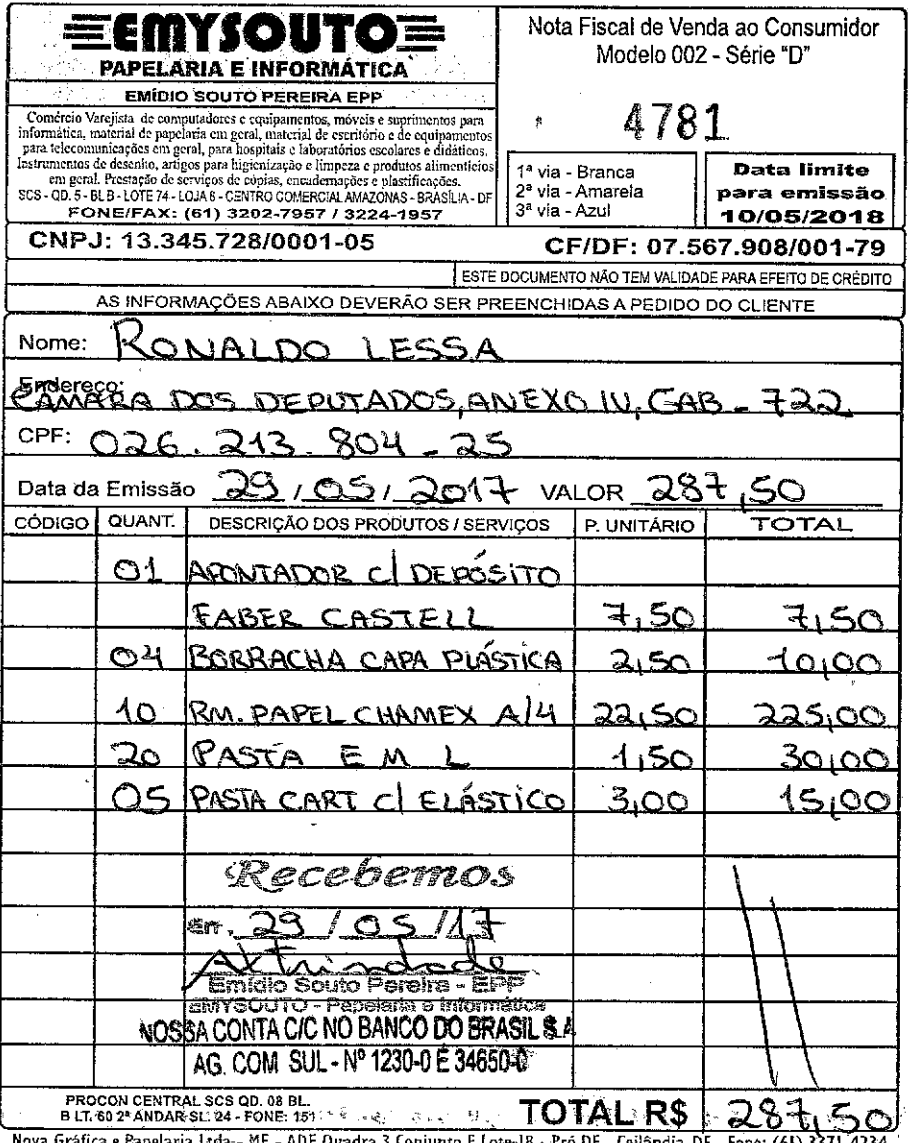 EMYSOUTO
PAPELARIA E INFORMÁTICA
EMÍDIO SOUTO PEREIRA EPP
Comércio Varejista de computadores e equipamentos, móveis e suprimentos para
informática, material de papelaria em geral, material de escritório e de equipamentos
para telecomunicações em geral, para hospitais e laboratórios escolares e didáticos.
Instrumentos de desenho, artigos para higienização e limpeza e produtos alimentícios
em geral. Prestação de serviços de cópias, encadernações e plastificações.
SCS - QD. 5 - BL B - LOTE 74 - LOJA 6 - CENTRO COMERCIAL AMAZONAS - BRASÍLIA - DF
FONE/FAX: (61) 3202-7957 / 3224-1957
Nota Fiscal de Venda ao Consumidor
Modelo 002 - Série "D"
4781
1ª via - Branca
2ª via - Amarela
3ª via - Azul
Data limite
para emissão
10/05/2018
CNPJ: 13.345.728/0001-05 CF/DF: 07.567.908/001-79
ESTE DOCUMENTO NÃO TEM VALIDADE PARA EFEITO DE CRÉDITO
AS INFORMAÇÕES ABAIXO DEVERÃO SER PREENCHIDAS A PEDIDO DO CLIENTE
Nome: RONALDO LESSA
Endereço:
CÂMARA DOS DEPUTADOS, ANEXO IV, GAB - 722
CPF: 026.213.804-25
Data da Emissão 29/05/2017 VALOR 287,50
CÓDIGO QUANT. DESCRIÇÃO DOS PRODUTOS / SERVIÇOS P. UNITÁRIO TOTAL
01 APONTADOR C/ DEPÓSITO
FABER CASTELL 7,50 7,50
04 BORRACHA CAPA PLÁSTICA 2,50 10,00
10 RM. PAPEL CHAMEX A/4 22,50 225,00
20 PASTA E M L 1,50 30,00
05 PASTA CART C/ ELÁSTICO 3,00 15,00
Recebemos
em. 29/05/17
Emídio Souto Pereira - EPP
EMYSOUTO - Papelaria e Informática
NOSSA CONTA C/C NO BANCO DO BRASIL S.A
AG. COM SUL - Nº 1230-0 E 34650-0
PROCON CENTRAL SCS QD. 08 BL.
B LT. 60 2º ANDAR SL. 24 - FONE: 151
TOTAL R$ 287,50
Nova Gráfica e Papelaria Ltda - ME - ADE Quadra 3 Conjunto E Lote 18 - Pró DF - Ceilândia-DF Fone: (61) 3371 4234